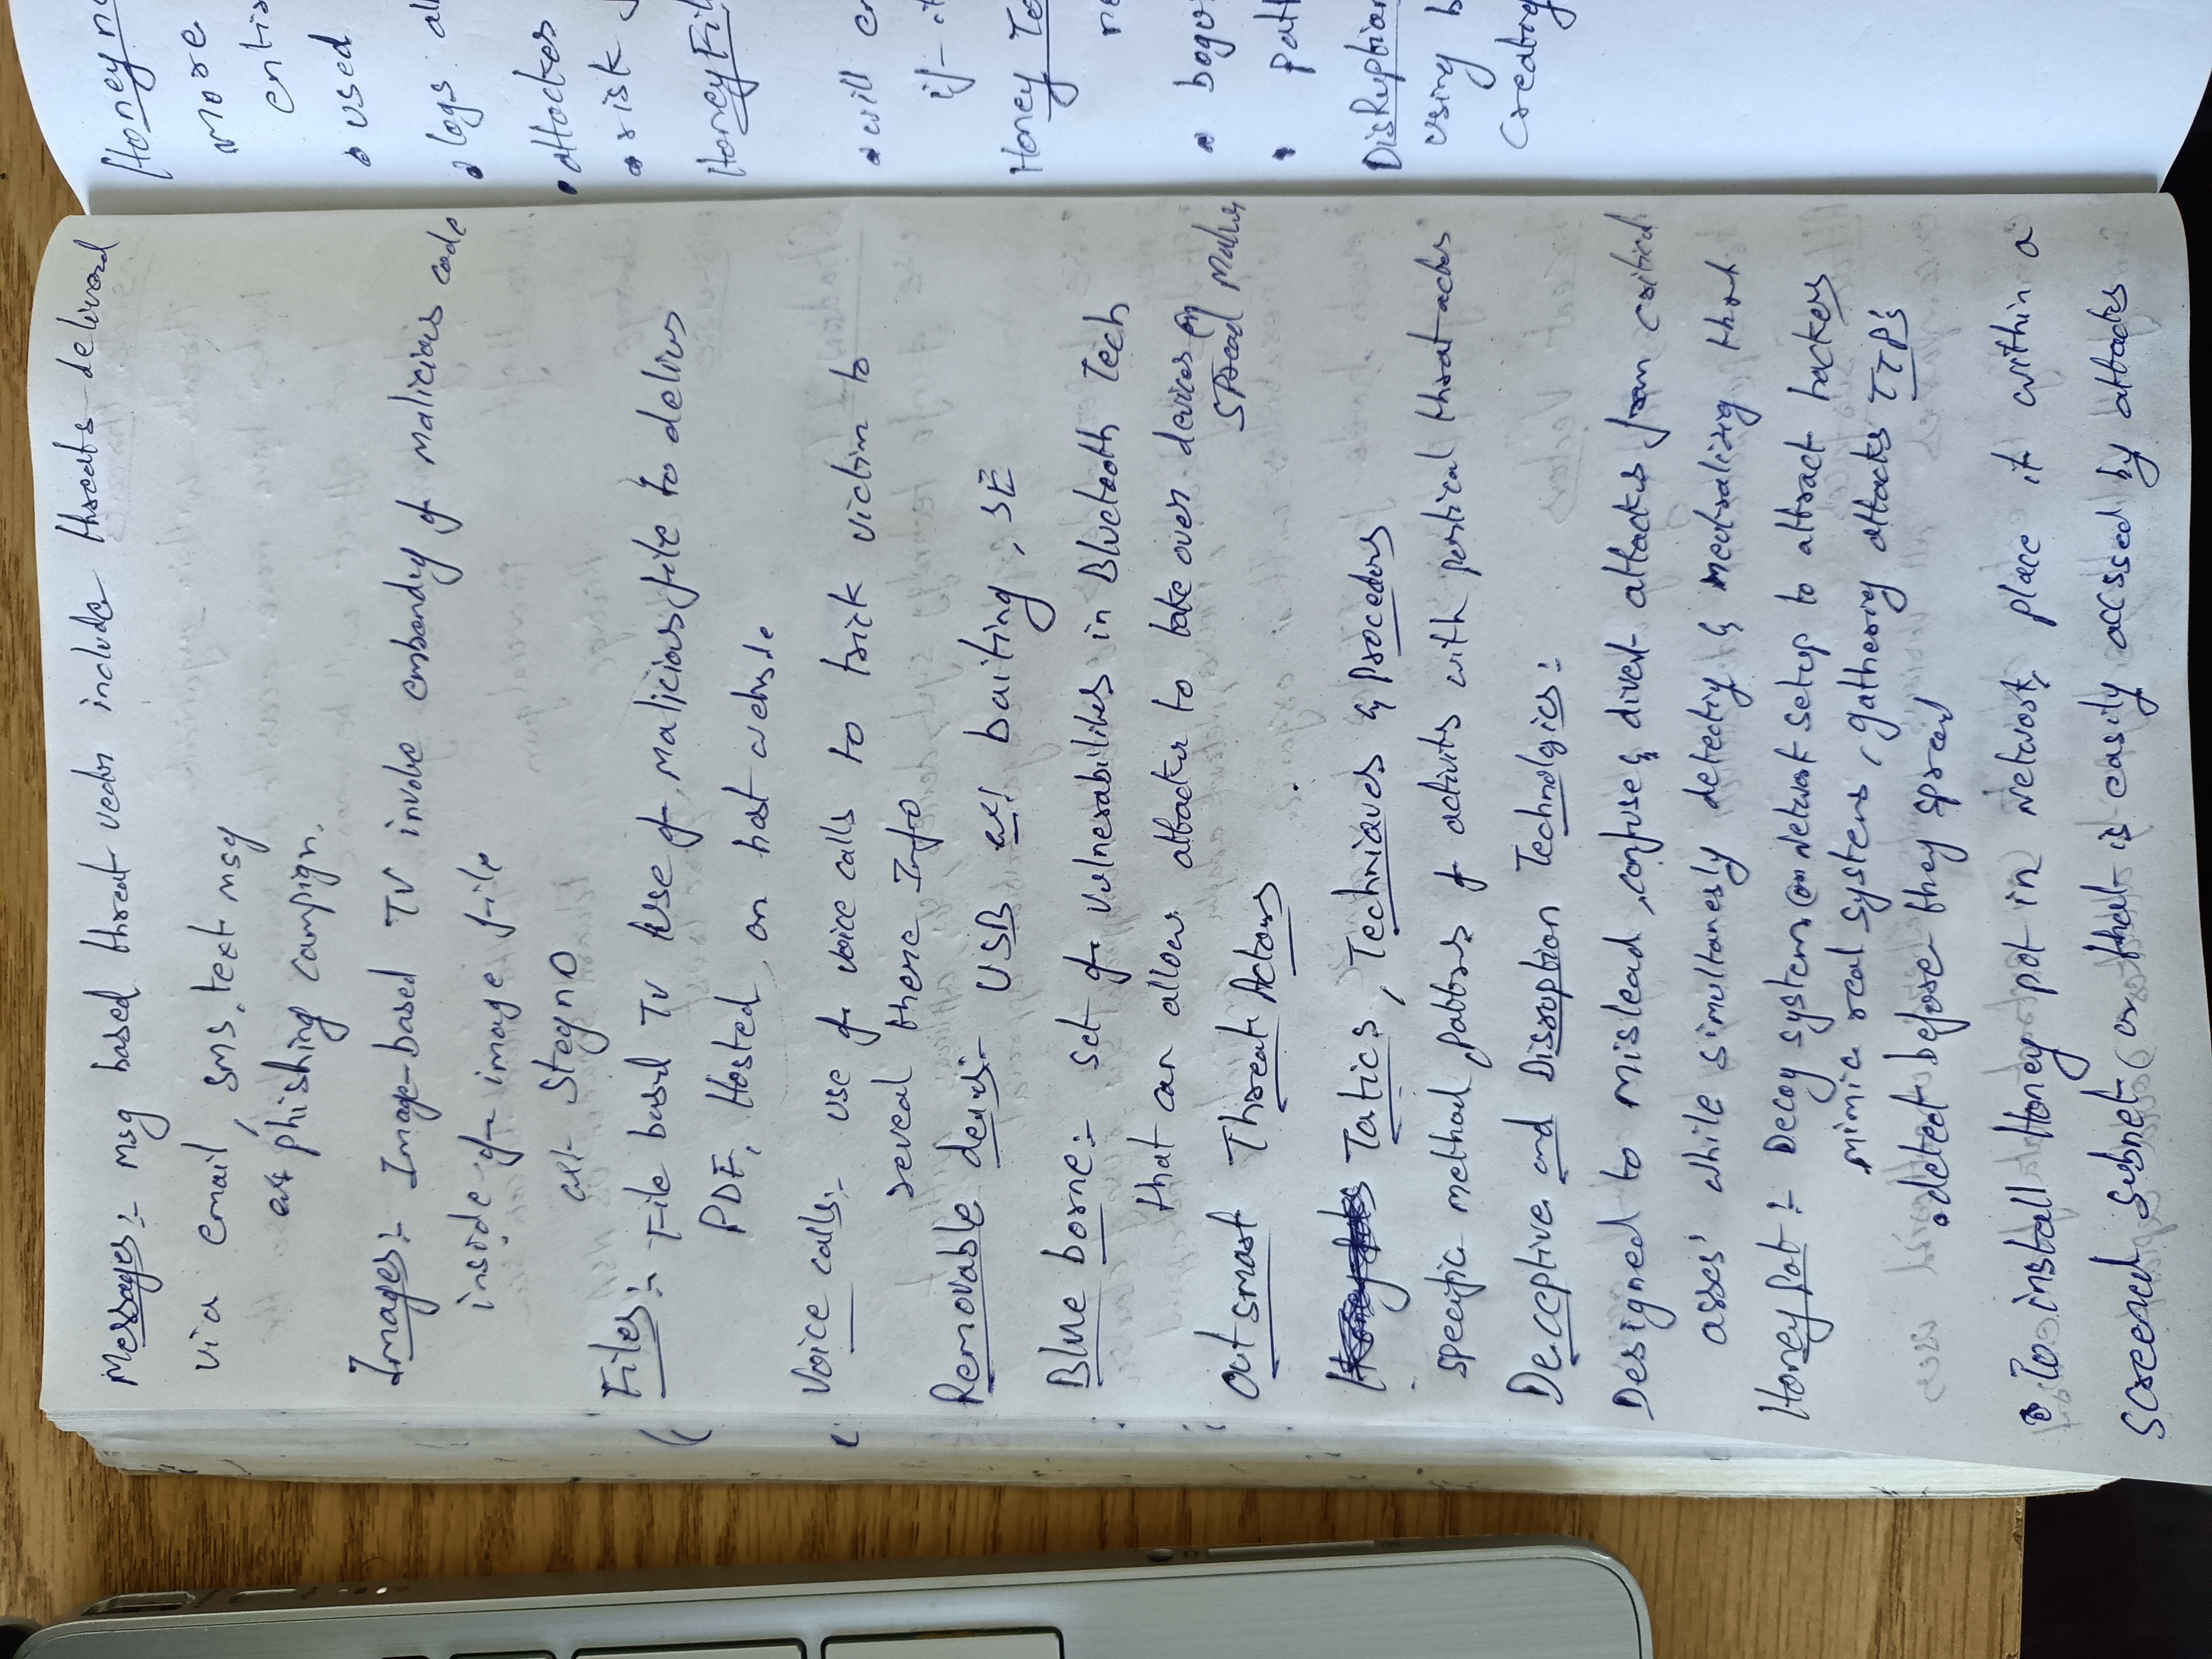 Messages:- Msg based threat vector include threats delivered
via email, SMS, text msg
ex phishing campign.
Images:- Image-based TV involve embending of malicious code
inside of image file
ex:- Stegno
Files:- File based TV Use of malicious file to delivrs
PDF, Hosted on host website
Voice calls:- use of voice calls to trick victim to
reveal there Info
Removable devices:- USB ex! baiting, SE
Blue borne:- set of vulnerabilities in Bluetooth Tech
that can allow attacker to take over devices or
spread Malwr
Out smart Threat Actors
Tatics, Techniques & Procedurs
specific method, patterns of activits with partical threat actors
Deceptive and Disruption Technolgies:
Designed to mislead, confuse & divert attackers from critical
asses' while simultanesly detectig & neutralizig threat
Honey Pot:- Decoy system or Network setup to attract hackers
mimic real systems, gatherig attacks TTP's
•detect before they spread
• To install Honey pot in Network, place it within a
screened subnet or that is easily accssed by attackers
Honey n
more
entir
• used
• logs all
• attacker
• risk f
Honey Fil
• will en
if it
Honey To
no
• bogus
• path
DisRuption
using b
Creatig